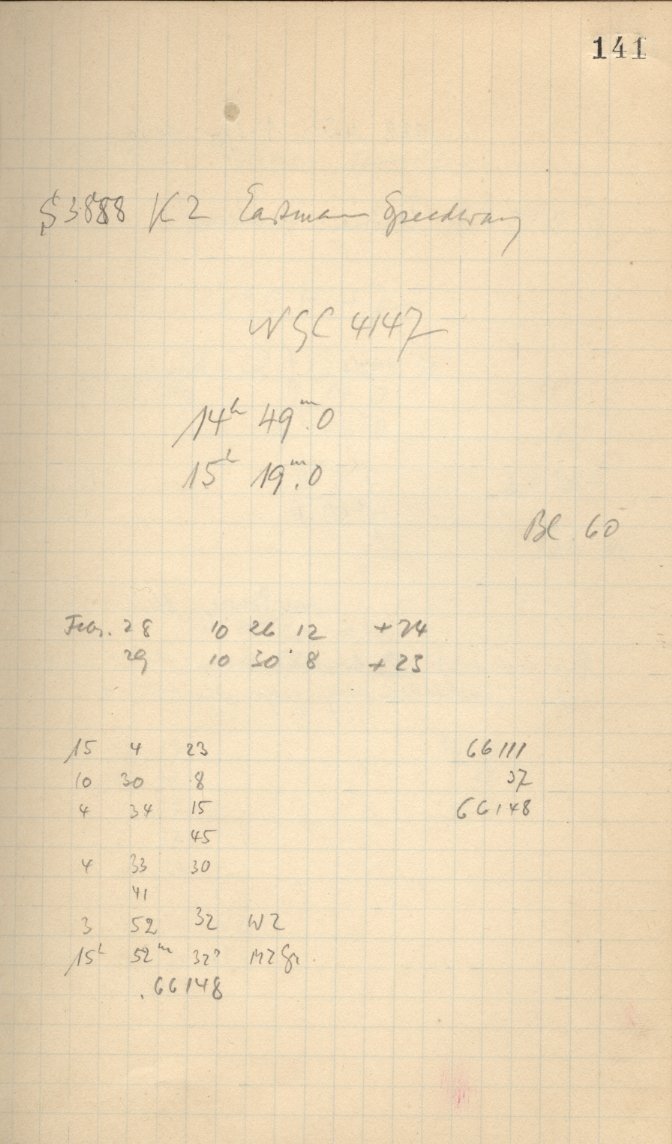 141
S3888 K2 Eastman Speedway
NGC 4147
14h 49m.0
15h 19m.0
Bl 60
Febr. 28 10 26 12 +24
29 10 30 8 +23
15 4 23 66111
10 30 8 37
4 34 15 66148
45
4 33 30
41
3 52 32 WZ
15h 52m 32s MZGr.
.66148